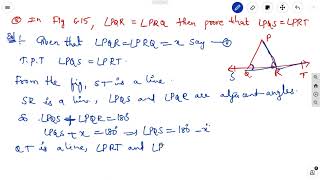 ③ In Fig 6.15, ∠PQR = ∠PRQ then prove that ∠PQS = ∠PRT
Sol:- Given that ∠PQR = ∠PRQ = x say - ①
T.P.T ∠PQS = ∠PRT.
P
S Q R T
From the fig, ST is a line.
SR is a line, ∠PQS and ∠PQR are adjacent angles.
∴ ∠PQS + ∠PQR = 180°
∠PQS + x = 180° ⇒ ∠PQS = 180° - x
QT is a line, ∠PRT and ∠P